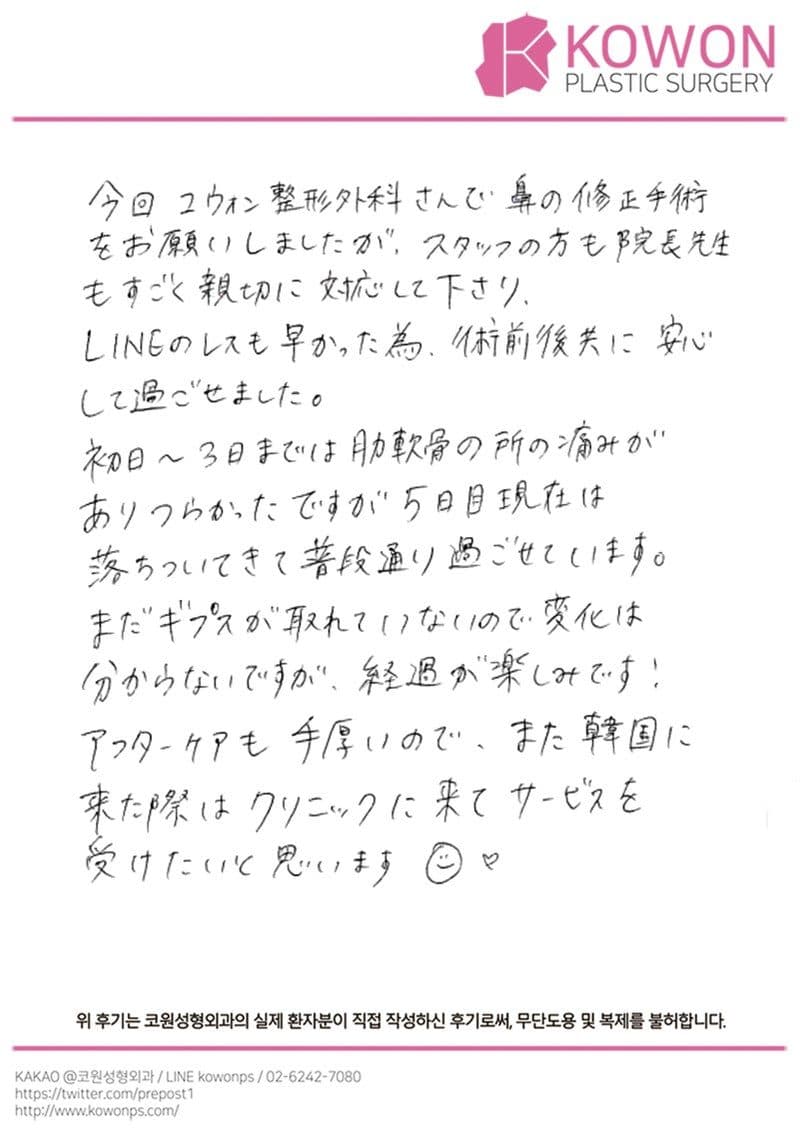 KOWON
PLASTIC SURGERY
今回 コウォン整形外科さんで 鼻の修正手術
をお願いしましたが、スタッフの方も院長先生
もすごく親切に 対応して下さり、
LINEのレスも早かった為、術前後共に 安心
して過ごせました。
初日～3日までは肋軟骨の所の痛みが
ありつらかったですが5日目現在は
落ちついてきて普段通り過ごせています。
まだギプスが取れていないので変化は
分からないですが、経過が楽しみです!
アフターケアも 手厚いので、また韓国に
来た際はクリニックに来てサービスを
受けたいと思います ☺ ♡
위 후기는 코원성형외과의 실제 환자분이 직접 작성하신 후기로써, 무단도용 및 복제를 불허합니다.
KAKAO @코원성형외과 / LINE kowonps / 02-6242-7080
https://twitter.com/prepost1
http://www.kowonps.com/